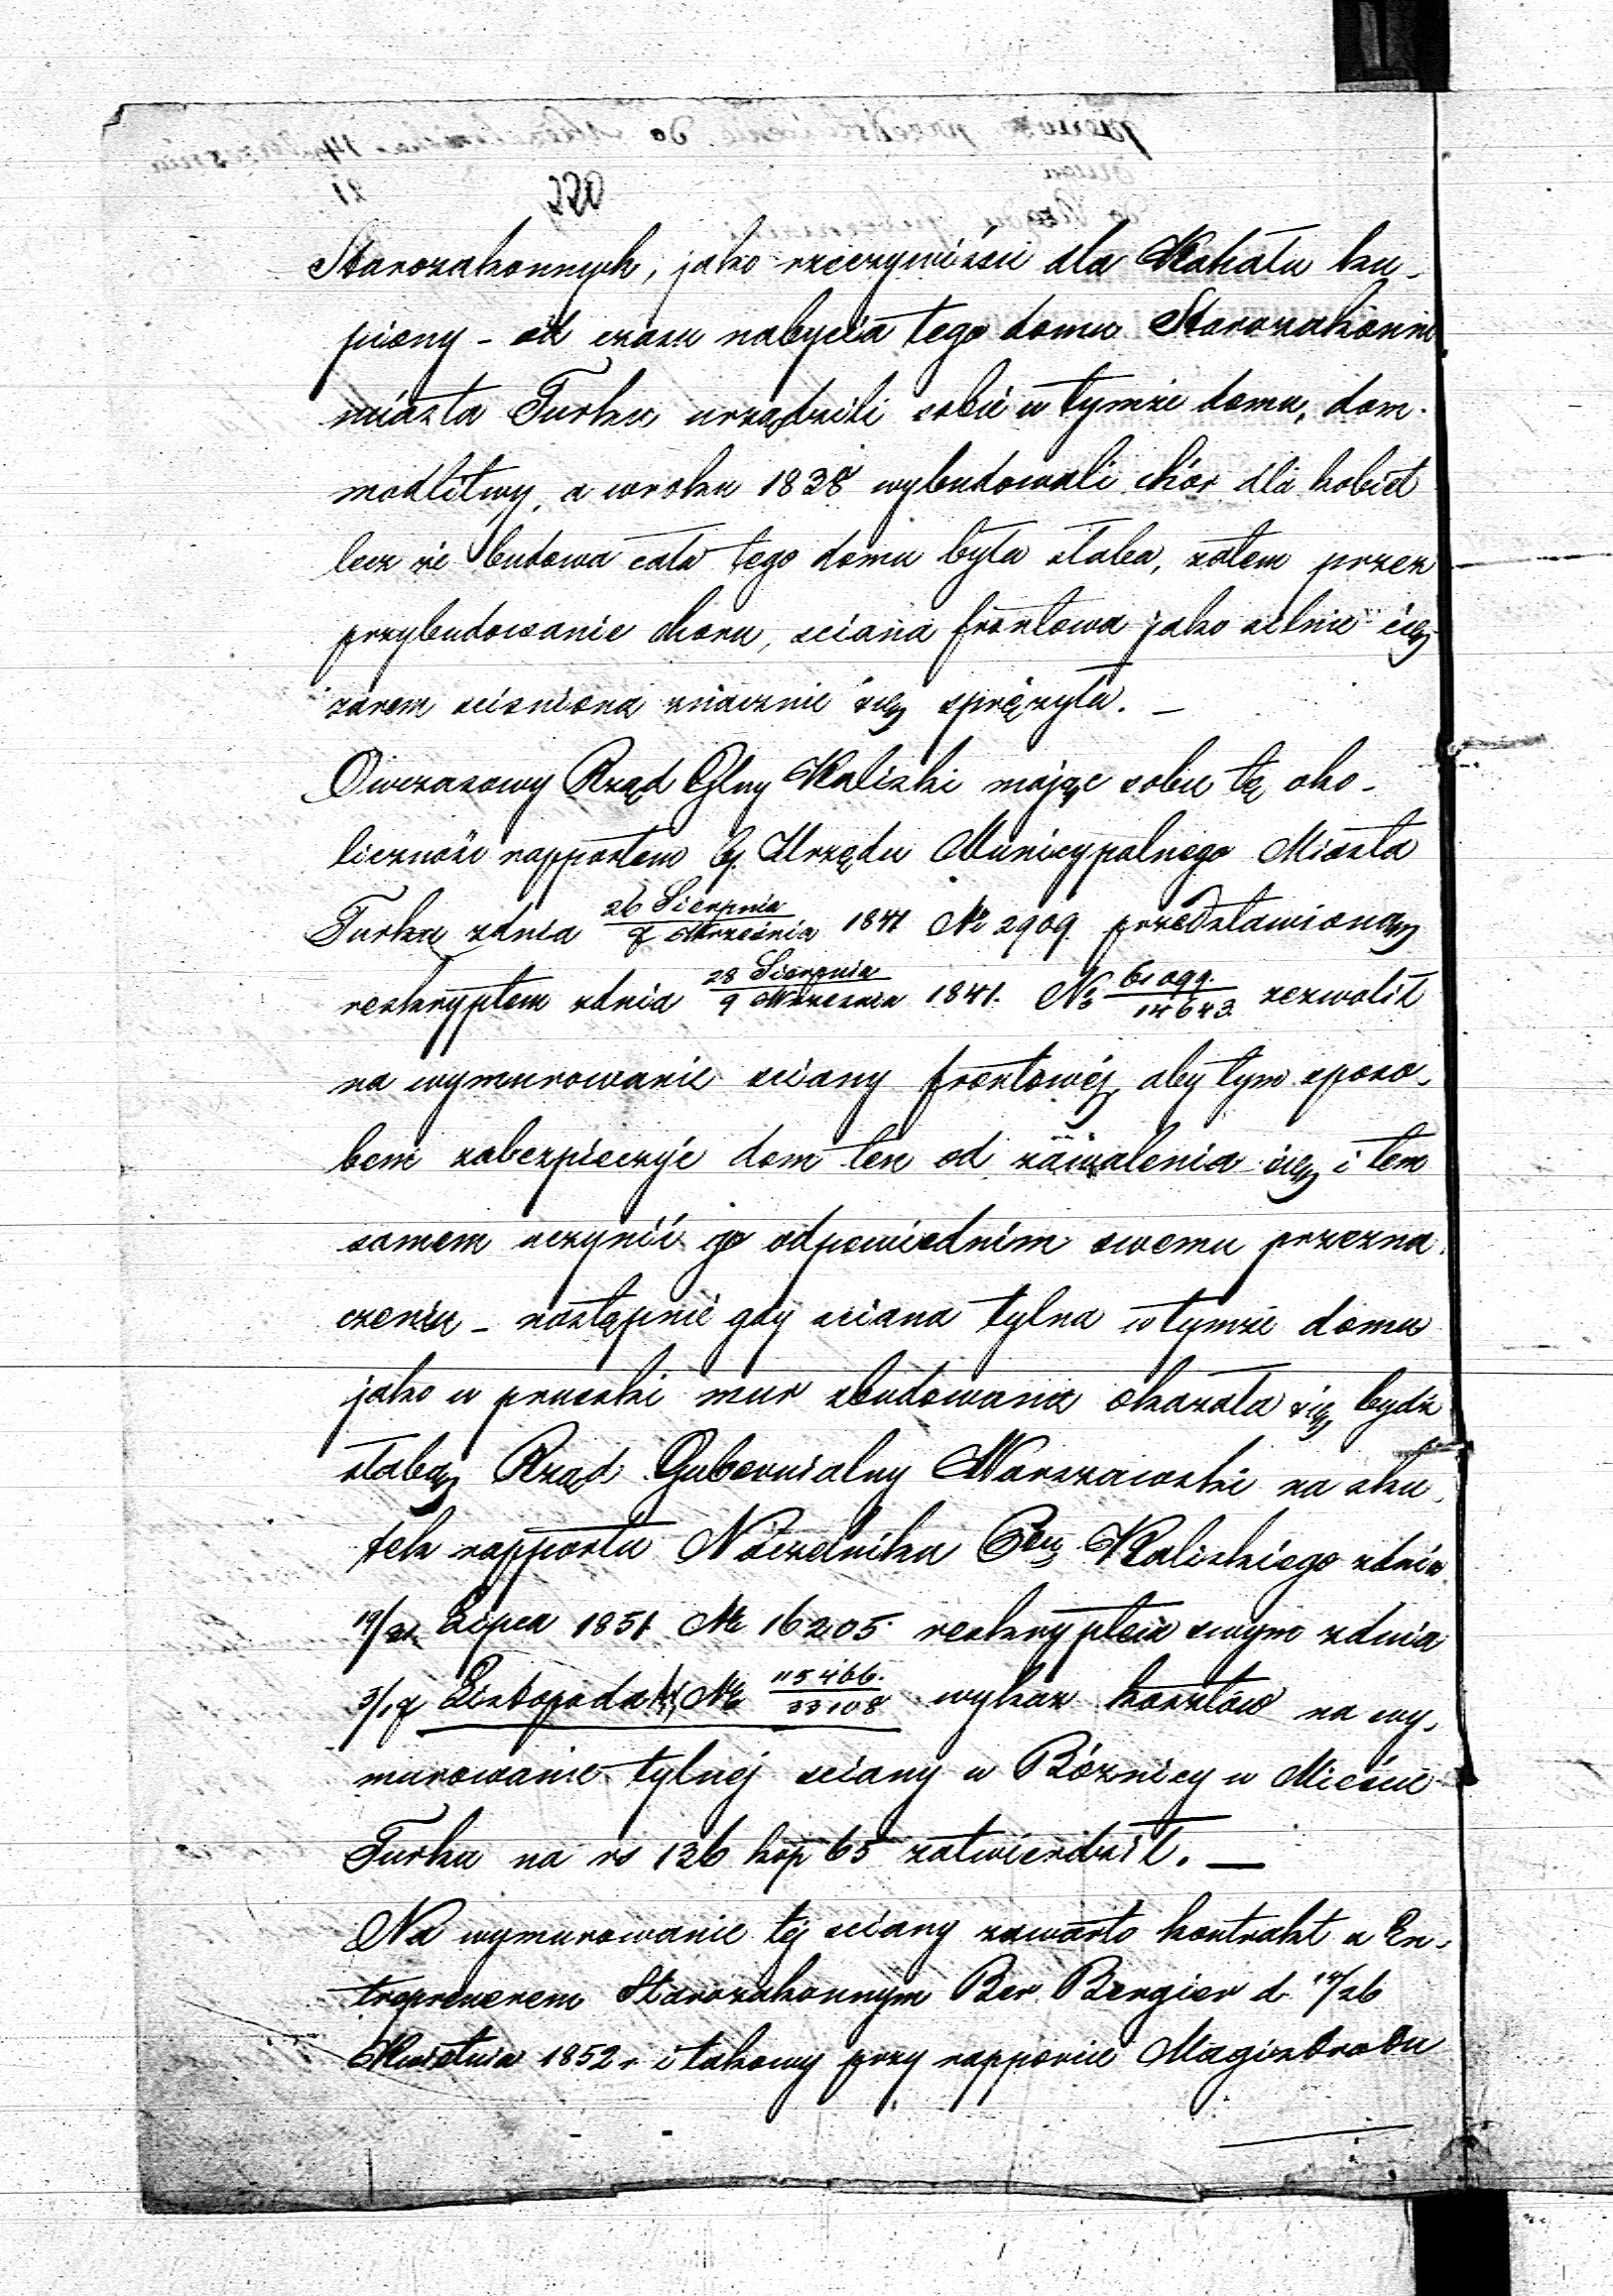 Starozakonnych, jako rzeczywiście dla Kahału ku-
piony - od czasu nabycia tego domu Starozakonni
miasta Turku, urządzili sobie w tymże domu, dom
modlitwy, a w roku 1838 wybudowali chór dla kobiet
lecz że budowa cała tego domu była słaba, zatem przez
przybudowanie choru, sciana frontowa jako silnie cię-
żarem scisniona znacznie się sprężyła. —
Owczasowy Rząd Glny Kaliski mając sobie tę oko-
liczność rapportem b. Urzędu Municypalnego Miasta
Turku z dnia 26 Sierpnia / 7 Września 1841 No 2909 przedstawioną
reskryptem z dnia 28 Sierpnia / 9 Września 1841. No 61099. / 14643 zezwolił
na wymurowanie sciany frontowéj, aby tym sposo-
bem zabezpieczyć dom ten od zawalenia się i tem
samem uczynić go odpowiednim swemu przezna-
czeniu - następnie gdy sciana tylna w tymże domu
jako w pruski mur zbudowana okazała się bydź
słabą Rząd Gubernialny Warszawski na sku-
tek rapportu Naczelnika Ptu Kaliskiego z dnia
19/31 Lipca 1851 No 16205 reskryptem swym z dnia
3/15 Listopada No 115466. / 33108 wykaz kosztów na wy-
murowanie tylnéj sciany w Bóżnicy w Mieście
Turku na rs 126 kop 65 zatwierdził. —
Na wymurowanie téj sciany zawarto kontrakt z En-
treprenerem Starozakonnym Ber Bergier d. 14/26
Kwietnia 1852 r i takowy przy rapporcie Magistratu